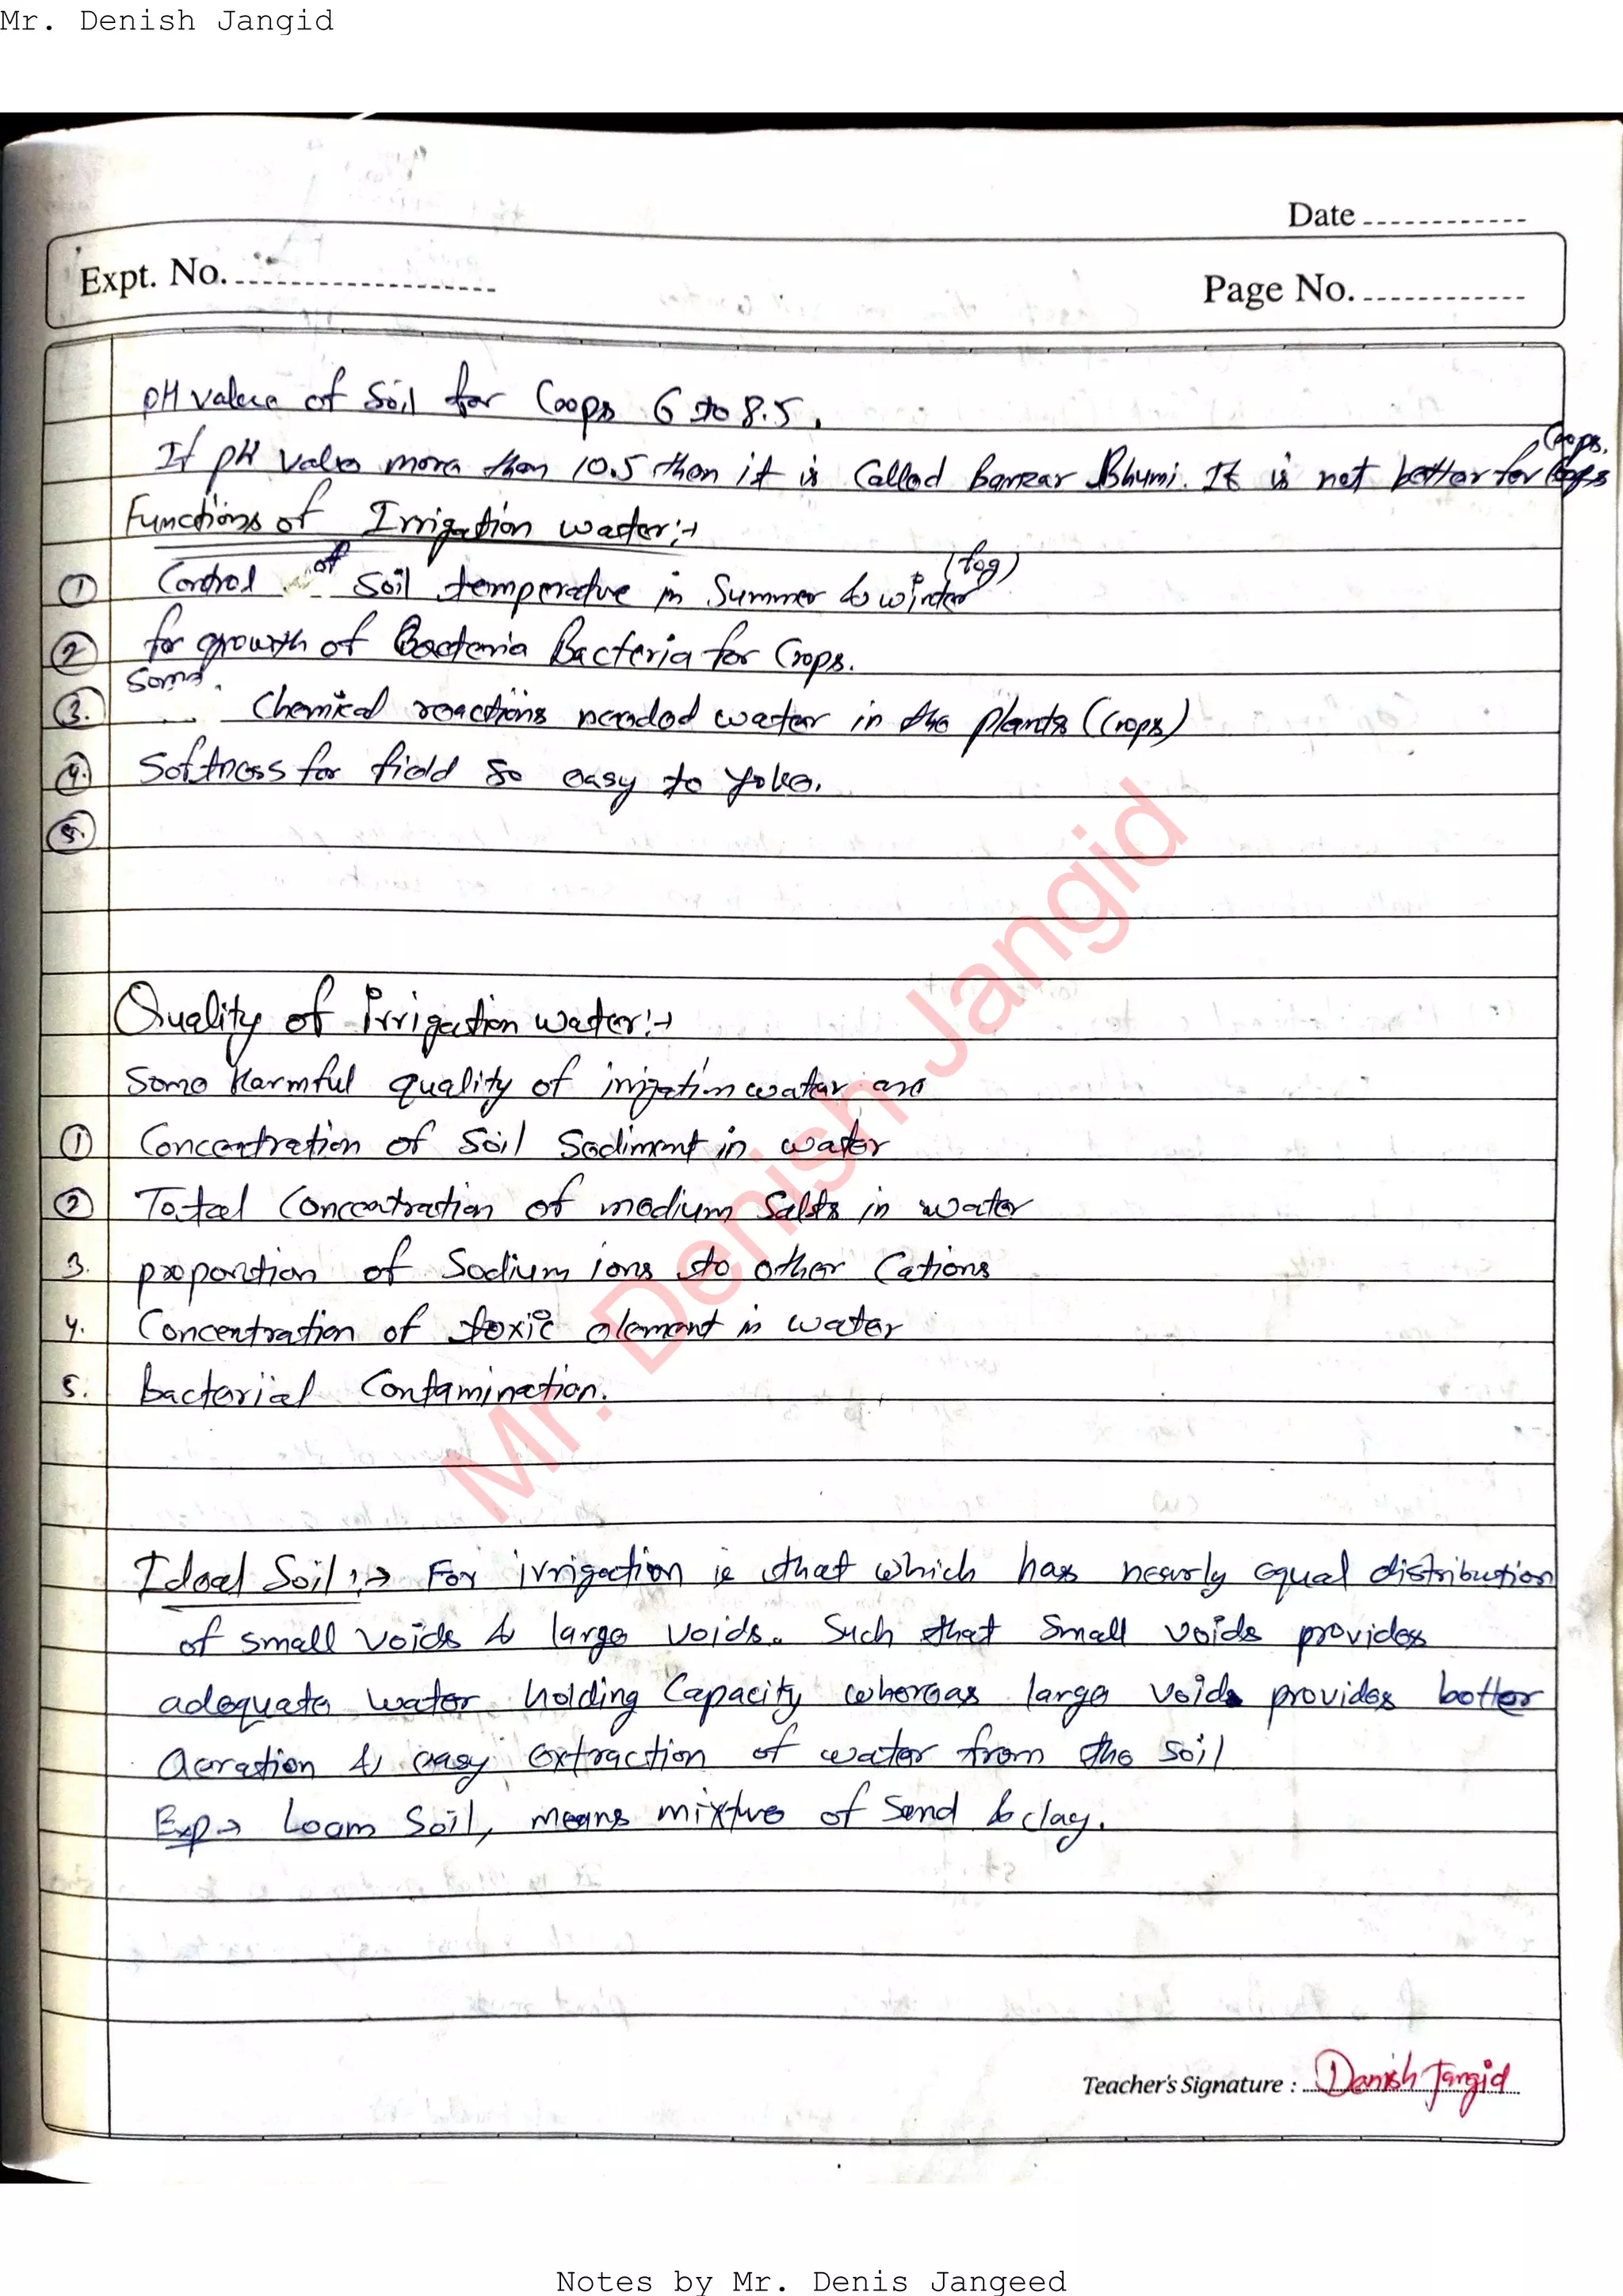 Mr. Denish Jangid
Date
Expt. No.
Page No.
pH value of Soil for Coops 6 to 8.5.
Crops.
If pH value more than 10.5 then it is Called Banzar Bhumi. It is not better for
Functions of Irrigation water:→
(fog)
① Control of Soil temperature in Summer & winter
② for growth of Bacteria Bacteria for Crops.
Some
③. Chemical reactions needed water in the plants (Crops)
④. Softness for field so easy to yoke.
⑤.
Quality of Irrigation water:→
Some Harmful quality of irrigation water are
① Concentration of Soil Sediment in water
② Total Concentration of medium Salts in water
3. proportion of Sodium ions to other Cations
4. Concentration of toxic element in water
5. bacterial Contamination.
Ideal Soil:→ For irrigation is that which has nearly equal distribution
of small voids & large voids. Such that Small voids provides
adequate water holding Capacity whereas large voids provides better
Aeration & easy extraction of water from the soil
Exp→ Loam Soil, means mixture of Sand & clay.
Mr. Denish Jangid
Teacher's Signature : Denish Jangid
Notes by Mr. Denis Jangeed